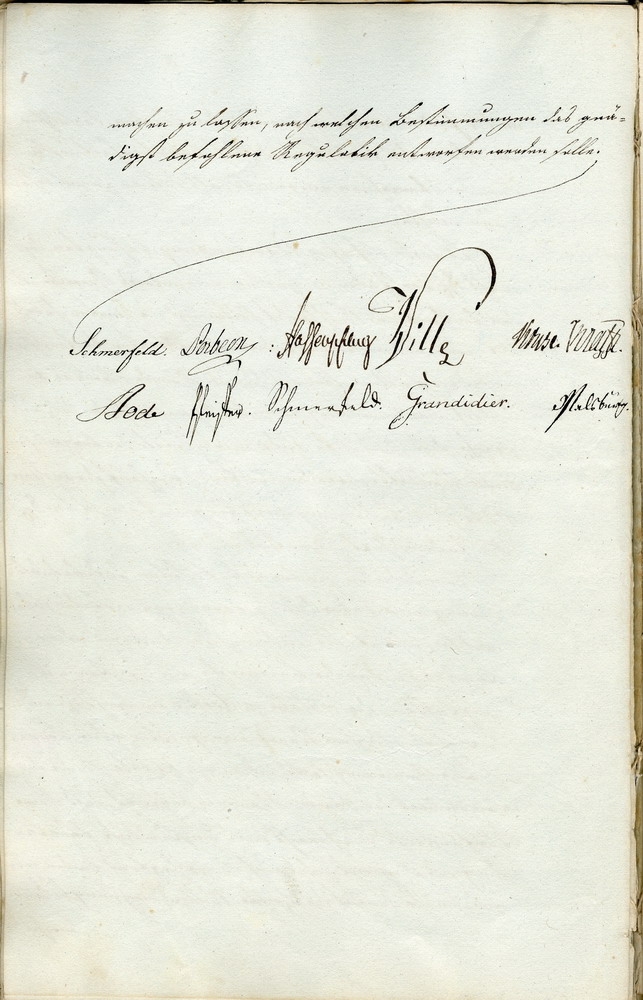 machen zu lassen, nach welchen Bestimmungen das gnä-
digst befohlene Regulativ entworfen werden solle.
Schmerfeld. : Hassenpflug Wille Kruse.
Rode Pfeiffer. Schmerfeld. Grandidier. Malsburg.